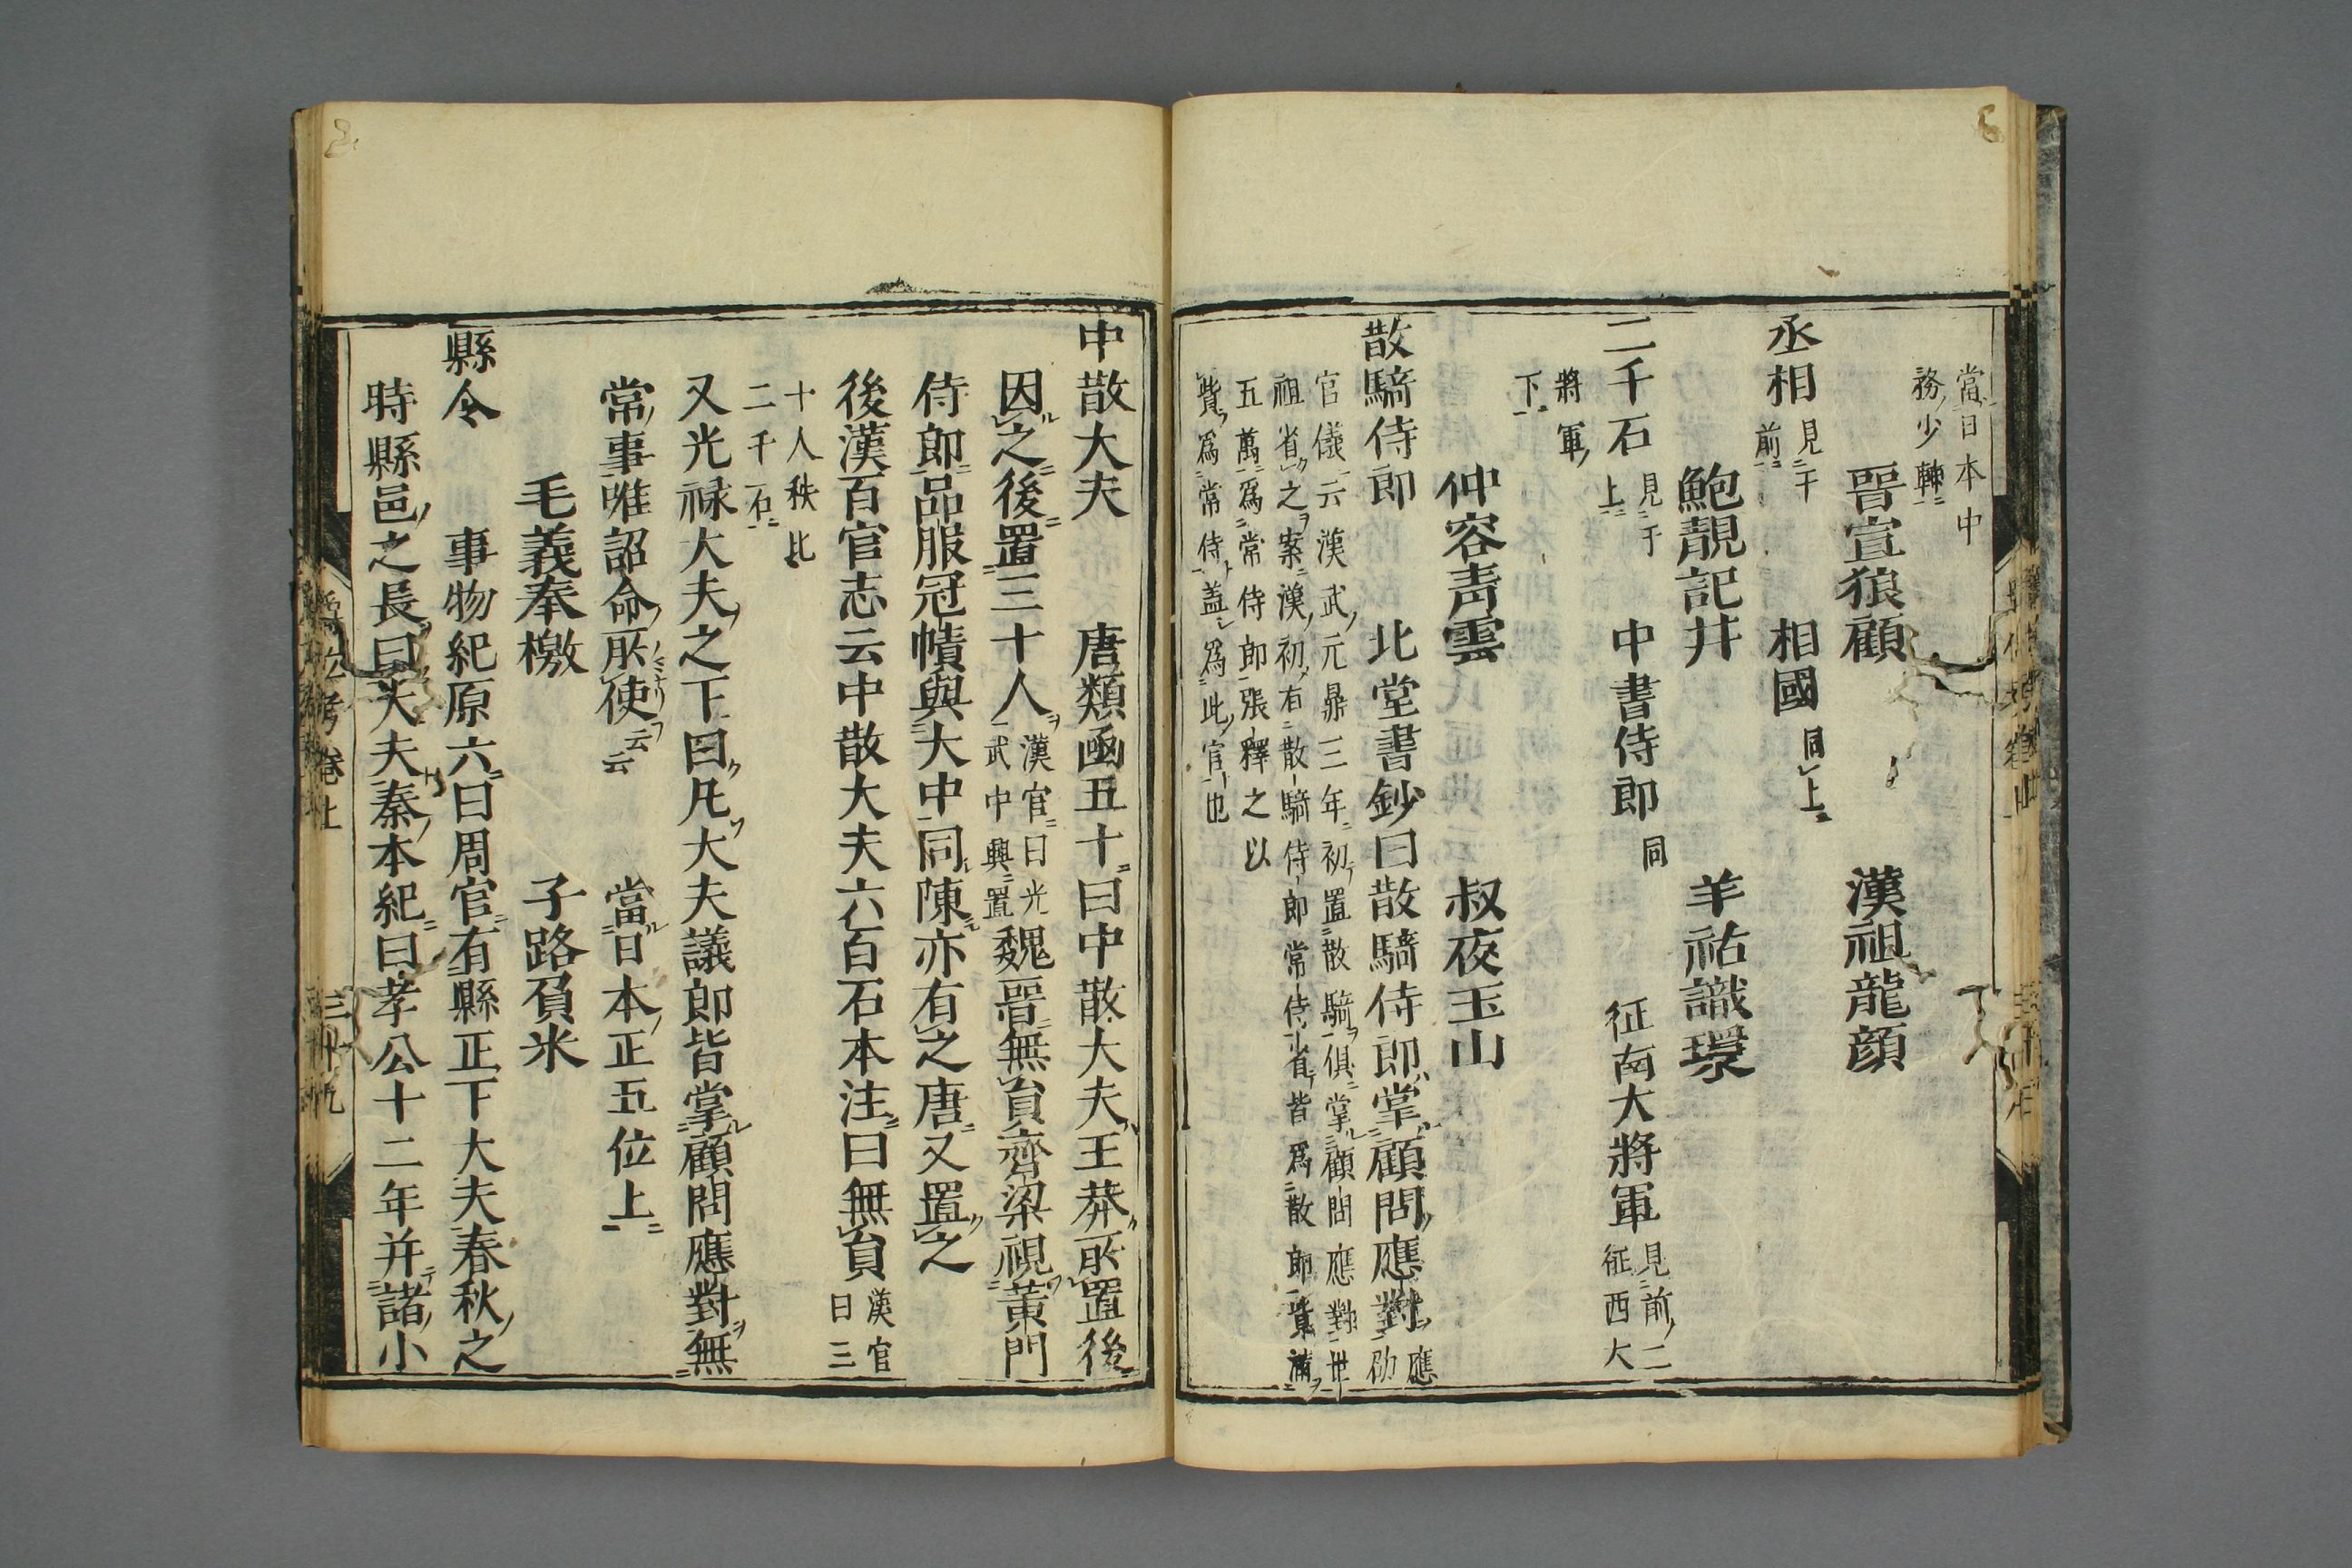 當日本中
務少輔
晉宣狼顧 漢祖龍顏
丞相 見于前 相國 同上
鮑靚記井 羊祐識環
二千石 見于上 中書侍郎 同 征南大將軍 見前二征西大
將軍下
仲容青雲 叔夜玉山
散騎侍郎 北堂書鈔曰散騎侍郎掌顧問應對 應劭
官儀云漢武元鼎三年初置散騎俱掌顧問應對世
祖省之案漢初有散騎侍郎常侍省皆爲散郎貲滿
五萬爲常侍郎張釋之以
貲爲常侍蓋爲此官也
中散大夫 唐類函五十曰中散大夫王莽所置後
因之後置三十人 漢官曰光武中興置 魏晉無員齊梁視黄門
侍郎品服冠幘與大中同陳亦有之唐又置之
後漢百官志云中散大夫六百石本注曰無員 漢官曰三
十人秩比
二千石
又光祿大夫之下曰凡大夫議郎皆掌顧問應對無
常事唯詔命所使云云 當日本正五位上
毛義奉檄 子路負米
縣令 事物紀原六曰周官有縣正下大夫春秋之
時縣邑之長曰大夫秦本紀曰孝公十二年并諸小
爵位考卷上 三十九